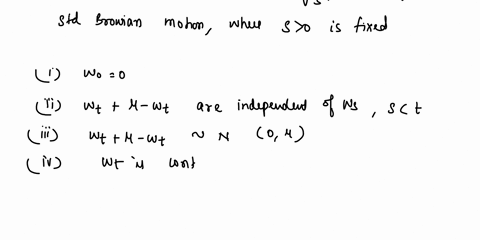 std Browian motion, where s>0 is fixed
(i) W₀ = 0
(ii) Wt + µ - Wt are independent of Ws, s<t
(iii) Wt + µ - Wt ~ N (0, µ)
(iv) Wt is cont